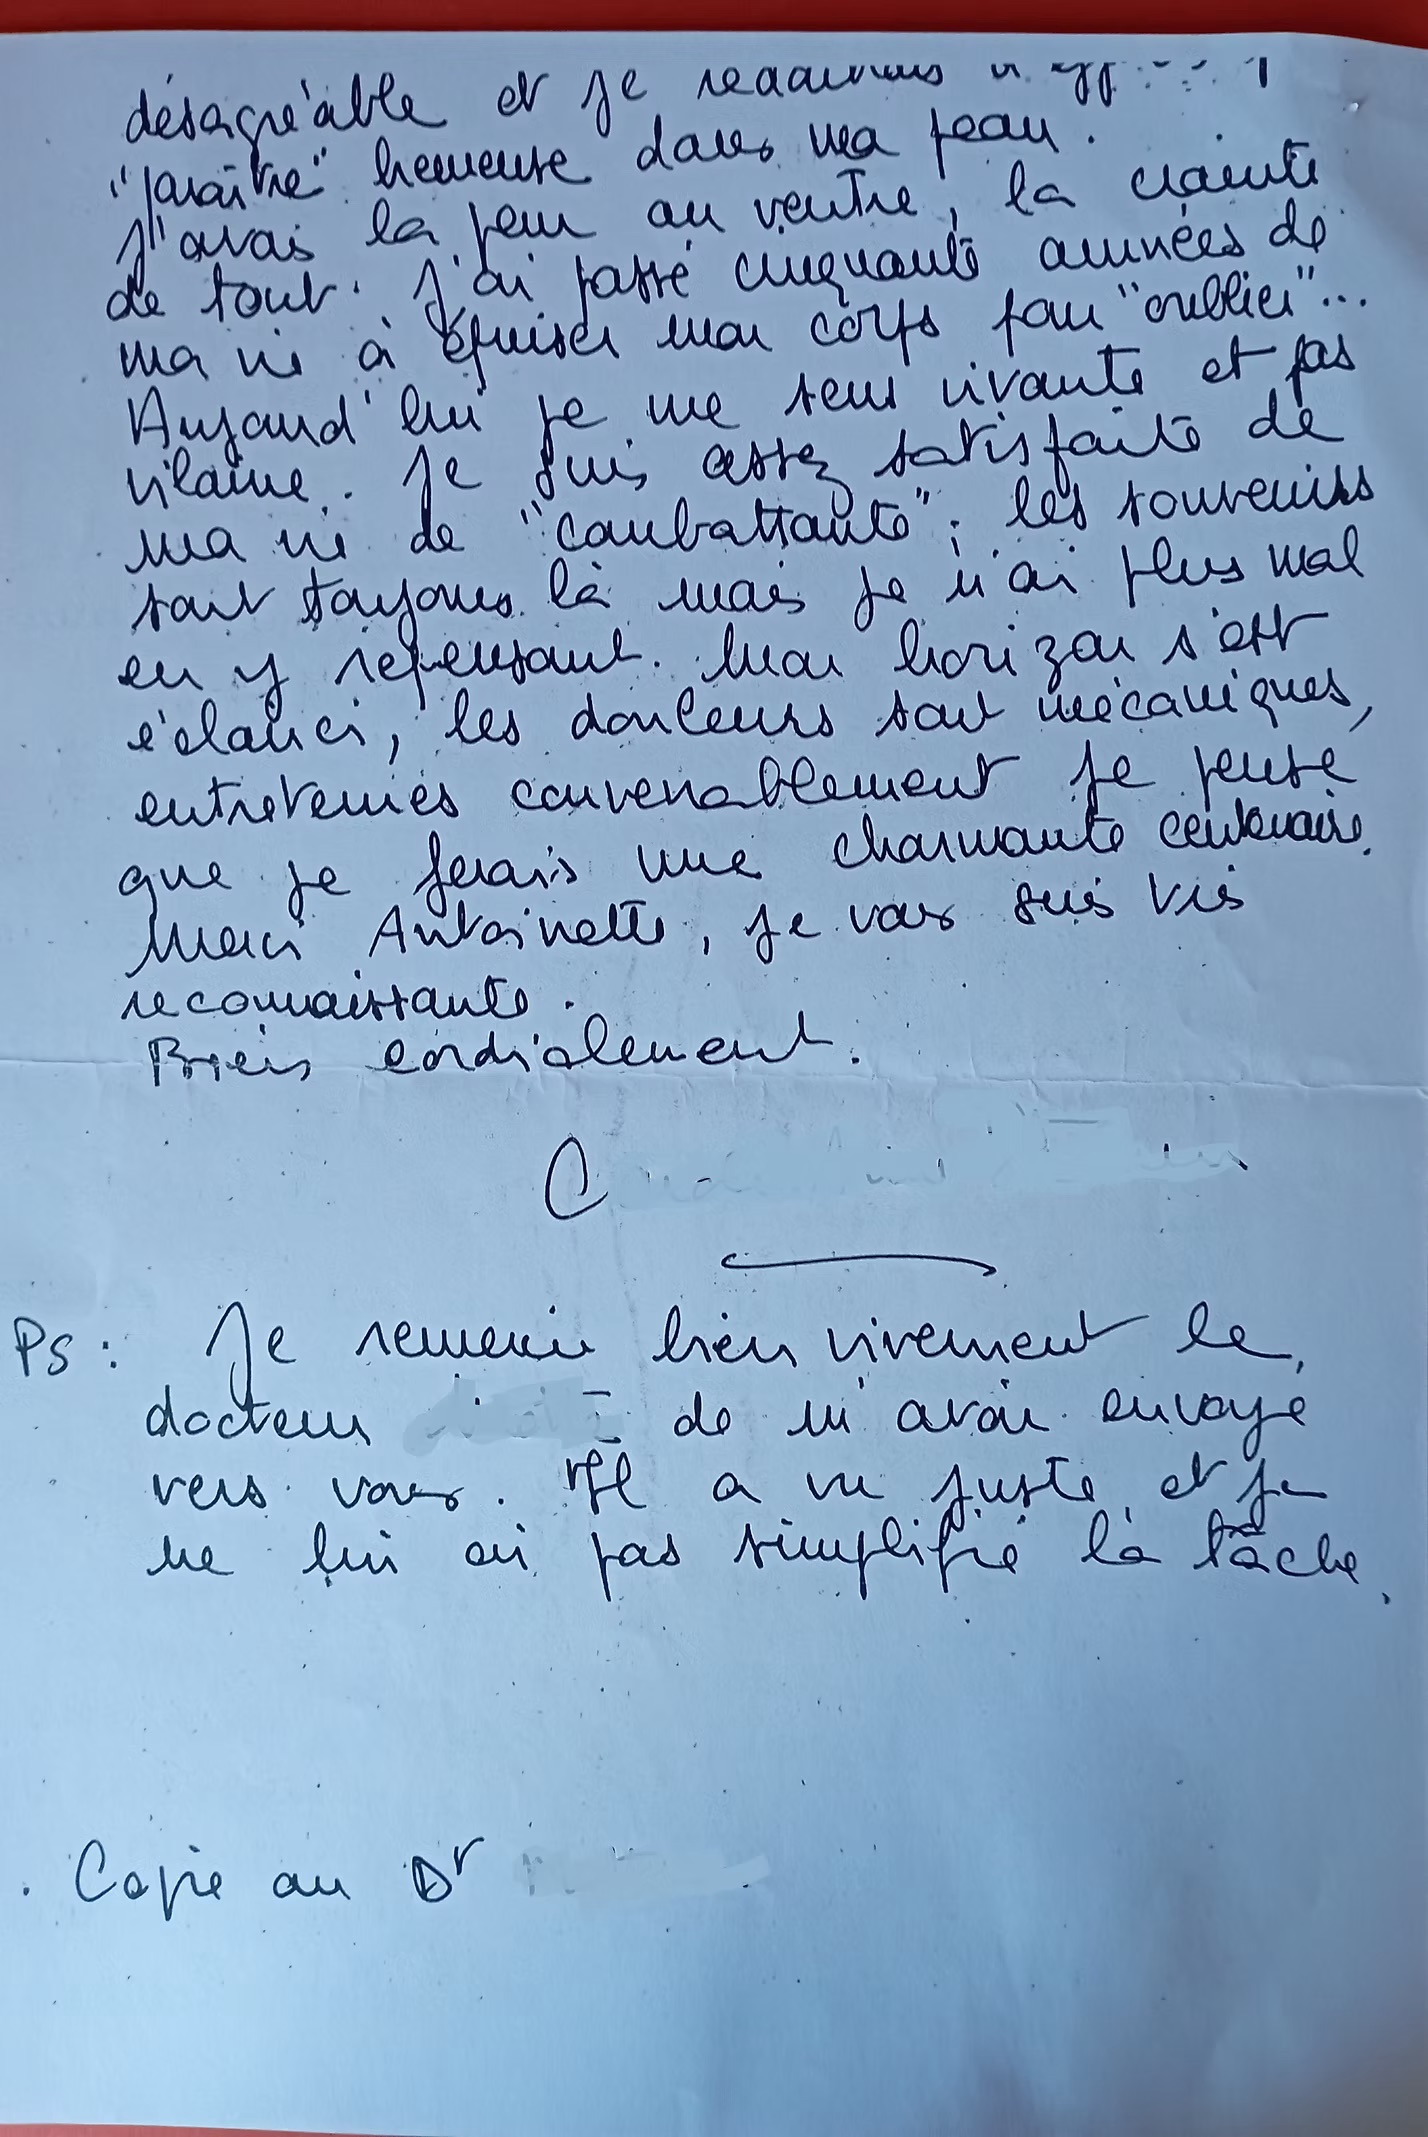 désagréable et je
"paraître" heureuse dans ma peau.
J'avais la peur au ventre, la crainte
de tout. J'ai passé cinquante années de
ma vie à épuiser mon corps pour "oublier"...
Aujourd'hui je me sens vivante et pas
vilaine. Je suis assez satisfaite de
ma vie de "combattante"; les souvenirs
sont toujours là mais je n'ai plus mal
en y repensant. Mon horizon s'est
éclairci, les douleurs sont mécaniques,
entretenies convenablement je pense
que je ferais une charmante centenaire.
Merci Antoinette, je vous suis très
reconnaissante.
Bien cordialement.
C
Ps : Je remercie bien vivement le
docteur de m'avoir envoyé
vers vous. Il a vu juste et je
ne lui ai pas simplifié la tâche.
. Copie au Dr